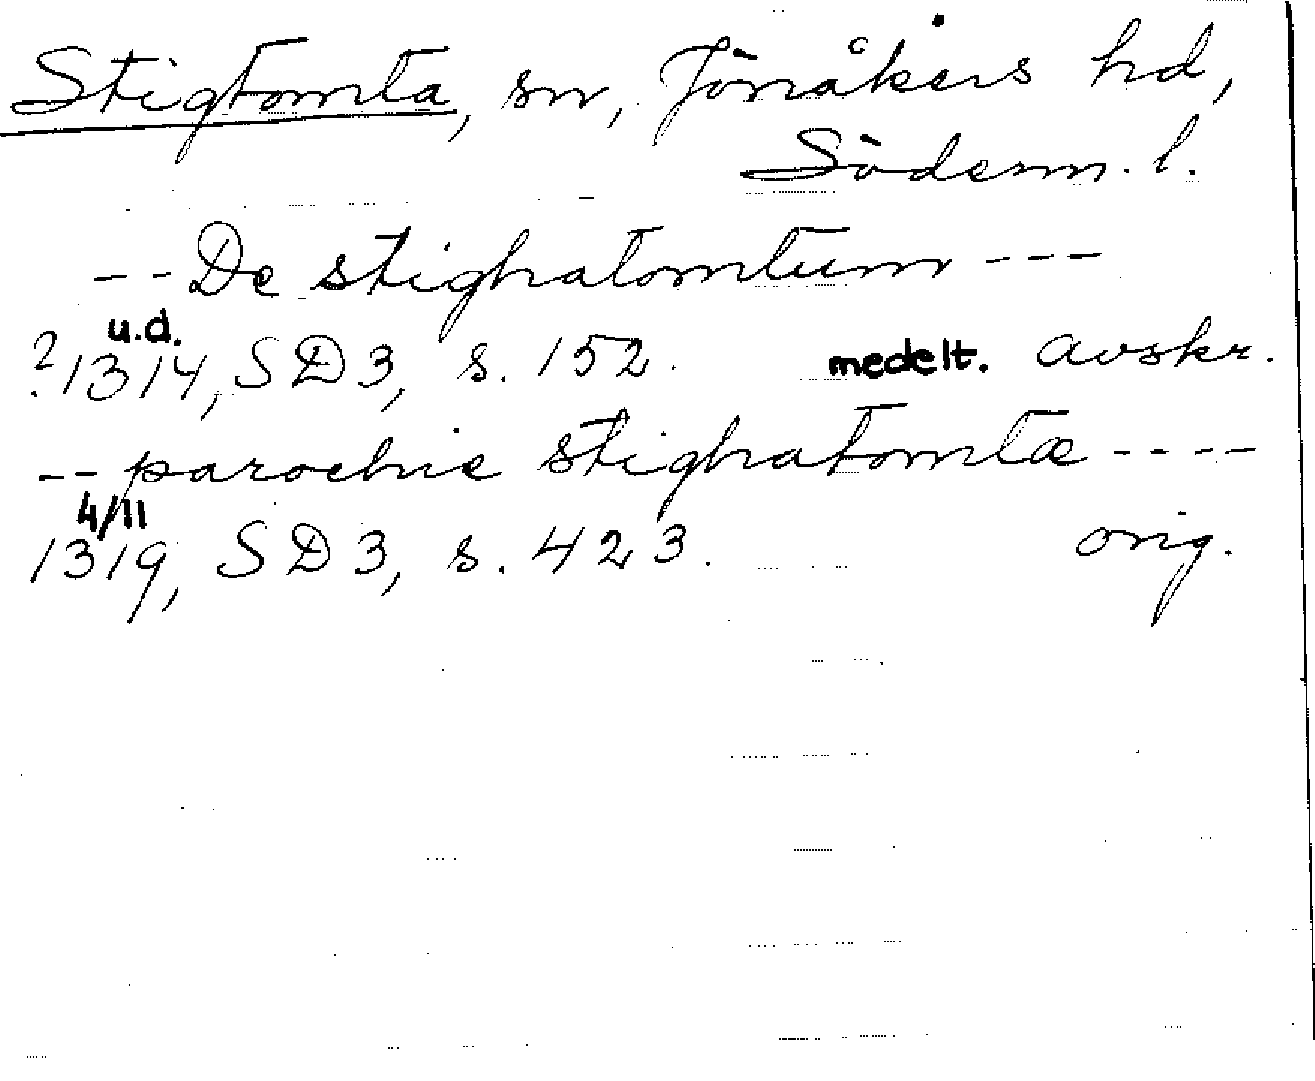 Stigtomta, sn, Jönåkers hd,
Söderm. l.
-- De stighatomtum ---
u.d.
? 1314, SD 3, s. 152. medelt. avskr.
-- parochie stighatomtæ ----
4/11
1319, SD 3, s. 423. orig.